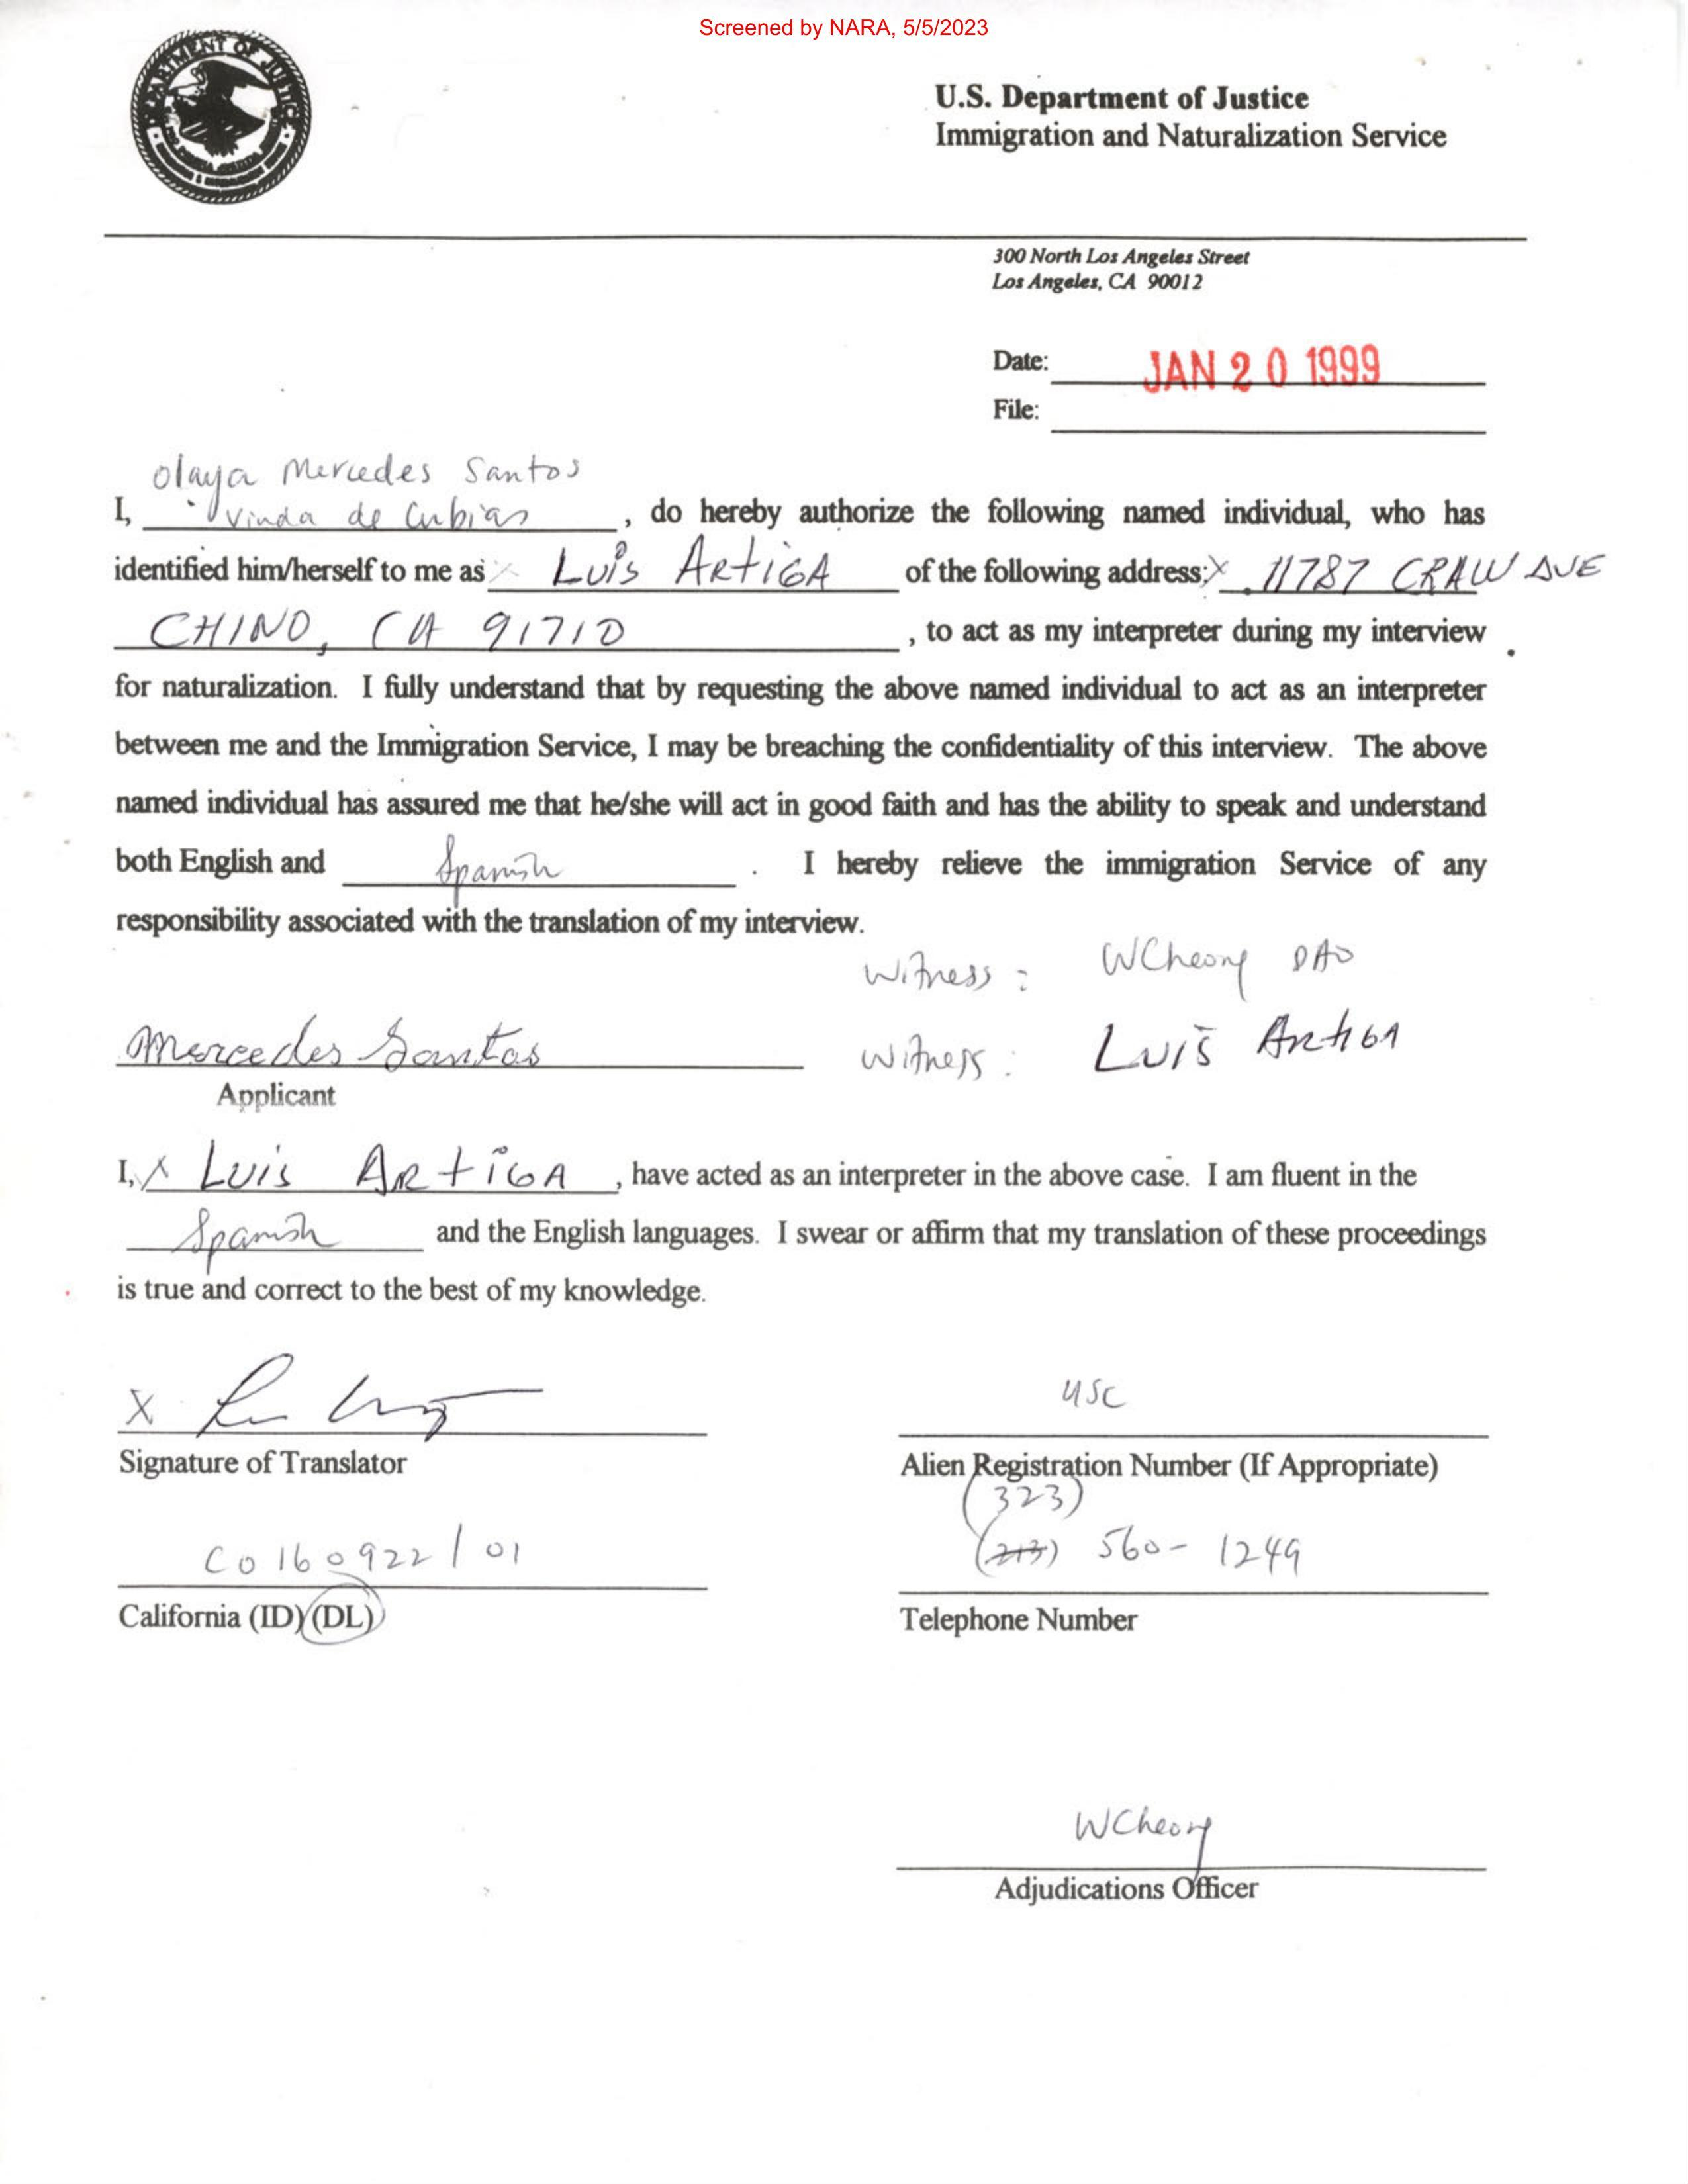 Screened by NARA, 5/5/2023
DEPARTMENT OF JUSTICE
U.S. Department of Justice
Immigration and Naturalization Service
300 North Los Angeles Street
Los Angeles, CA 90012
Date: JAN 20 1999
File:
Olaya Mercedes Santos
I, Vinda de Cubias, do hereby authorize the following named individual, who has
identified him/herself to me as X Luis ARtiGA of the following address: X 11787 CRAW AVE
CHINO, CA 91710, to act as my interpreter during my interview
for naturalization. I fully understand that by requesting the above named individual to act as an interpreter
between me and the Immigration Service, I may be breaching the confidentiality of this interview. The above
named individual has assured me that he/she will act in good faith and has the ability to speak and understand
both English and Spanish. I hereby relieve the immigration Service of any
responsibility associated with the translation of my interview.
Witness: WCheong DAO
Mercedes Santos
Witness: Luis ArtiGA
Applicant
I, X Luis ARtiGA, have acted as an interpreter in the above case. I am fluent in the
Spanish and the English languages. I swear or affirm that my translation of these proceedings
is true and correct to the best of my knowledge.
X
USC
Signature of Translator
Alien Registration Number (If Appropriate)
(323)
C0160922/01
(213) 560-1249
California (ID)(DL)
Telephone Number
WCheong
Adjudications Officer